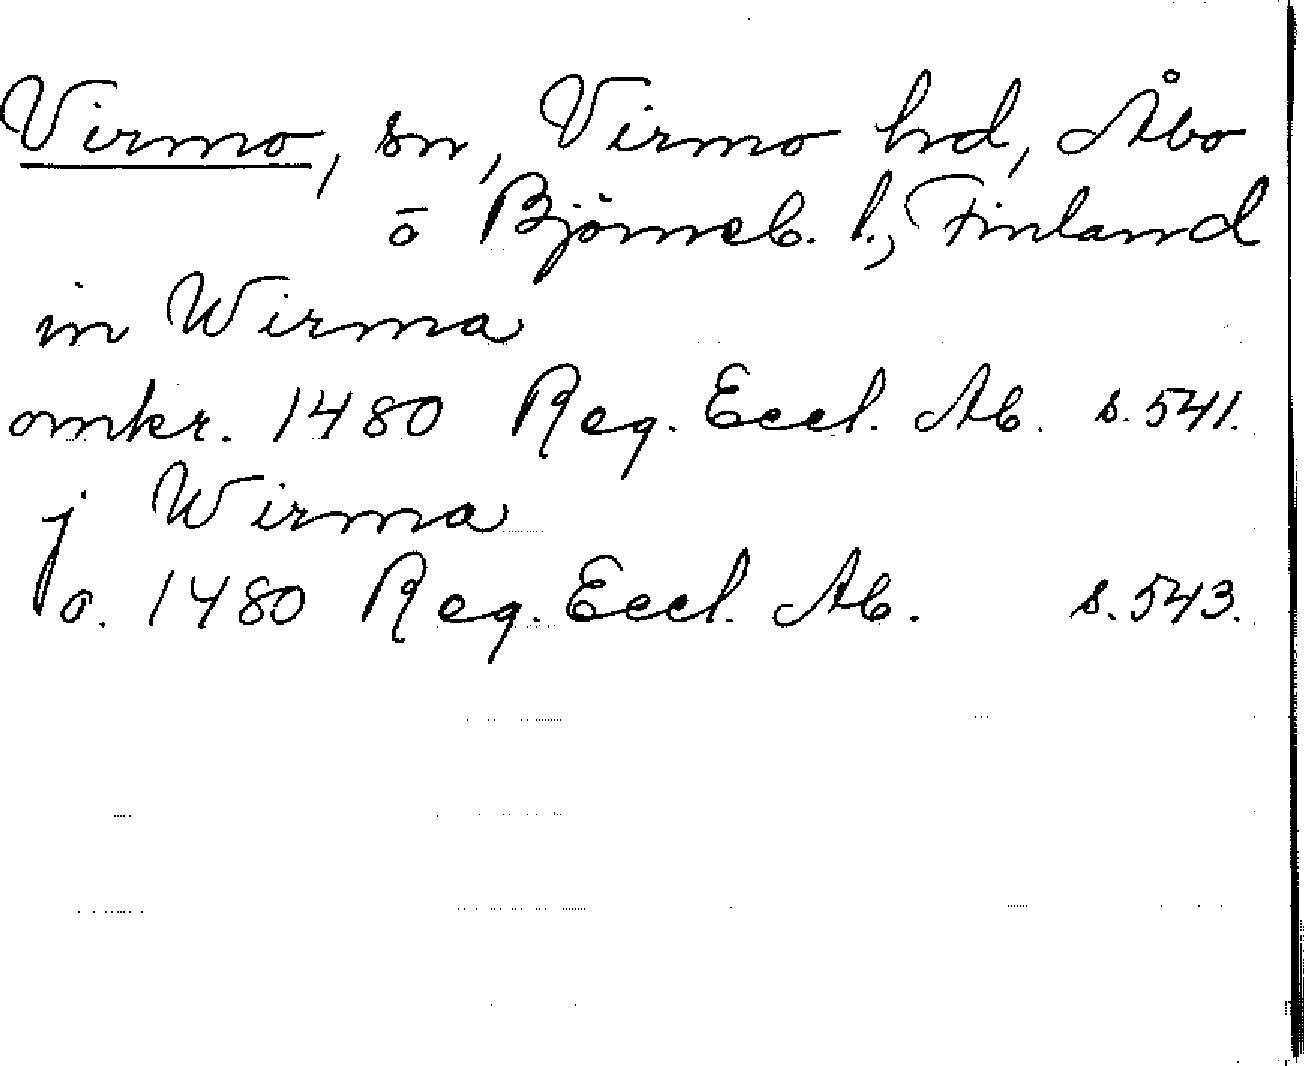 Virmo, sn, Virmo hd, Åbo
o Björneb. l., Finland
in Wirma
omkr. 1480 Reg. Eccl. Ab. s. 541.
j Wirma
o. 1480 Reg. Eccl. Ab. s. 543.